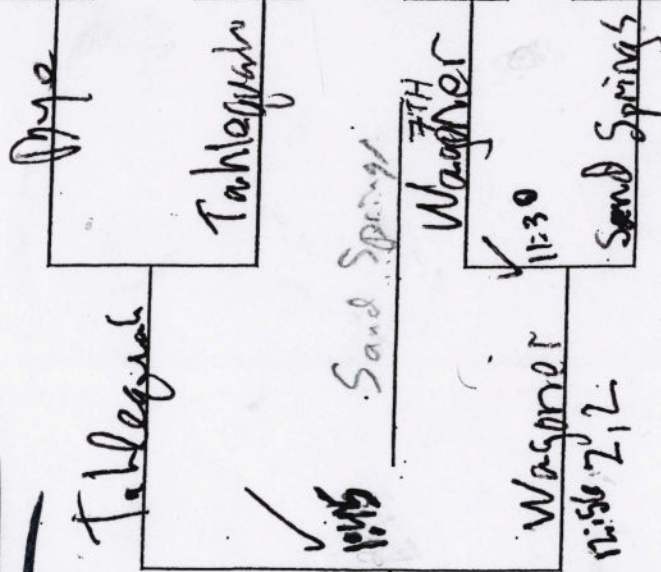 Pryo
Tahlequah
Tahlequah
Sand Springs
7TH
1:45
Wagoner
11:30
Sand Springs
Wagoner
2,2